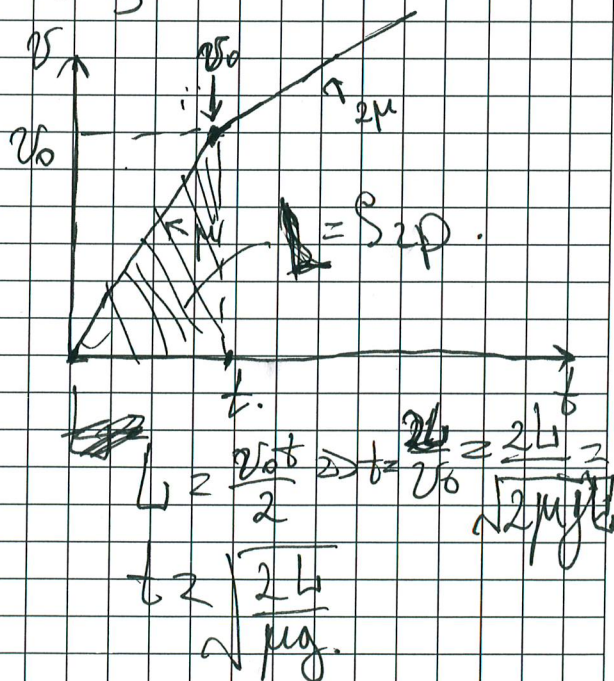 v v₀
2μ
v₀
μ
L = Sгр.
t. t
L = v₀t/2 ⇒ t = 2L/v₀ = 2L/√2μgL =
t = √2L/μg.